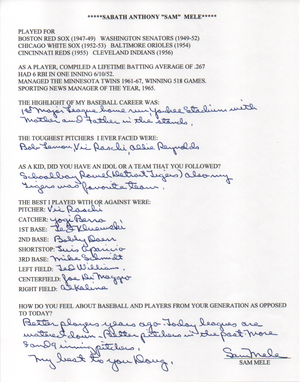 *****SABATH ANTHONY "SAM" MELE*****
PLAYED FOR
BOSTON RED SOX (1947-49) WASHINGTON SENATORS (1949-52)
CHICAGO WHITE SOX (1952-53) BALTIMORE ORIOLES (1954)
CINCINNATI REDS (1955) CLEVELAND INDIANS (1956)
AS A PLAYER, COMPILED A LIFETIME BATTING AVERAGE OF .267
HAD 6 RBI IN ONE INNING 6/10/52.
MANAGED THE MINNESOTA TWINS 1961-67, WINNING 518 GAMES.
SPORTING NEWS MANAGER OF THE YEAR, 1965.
THE HIGHLIGHT OF MY BASEBALL CAREER WAS:
1st Major League home run Yankee Stadium with
Mother and Father in the stands.
THE TOUGHEST PITCHERS I EVER FACED WERE:
Bob Lemon, Vic Raschi, Allie Reynolds
AS A KID, DID YOU HAVE AN IDOL OR A TEAM THAT YOU FOLLOWED?
Schoolboy Rowe (Detroit Tigers) also my
Tigers was favorite team.
THE BEST I PLAYED WITH OR AGAINST WERE:
PITCHER: Vic Raschi
CATCHER: Yogi Berra
1ST BASE: Ted Kluzewski
2ND BASE: Bobby Doerr
SHORTSTOP: Luis Aparicio
3RD BASE: Mike Schmidt
LEFT FIELD: Ted William,
CENTERFIELD: Joe Di Maggio
RIGHT FIELD: Al Kaline
HOW DO YOU FEEL ABOUT BASEBALL AND PLAYERS FROM YOUR GENERATION AS OPPOSED
TO TODAY?
Better players years ago. Today leagues are
watered down. Better pitchers in the past. More
8 and 9 inning pitchers.
My best to you Doug,
Sam Mele
SAM MELE